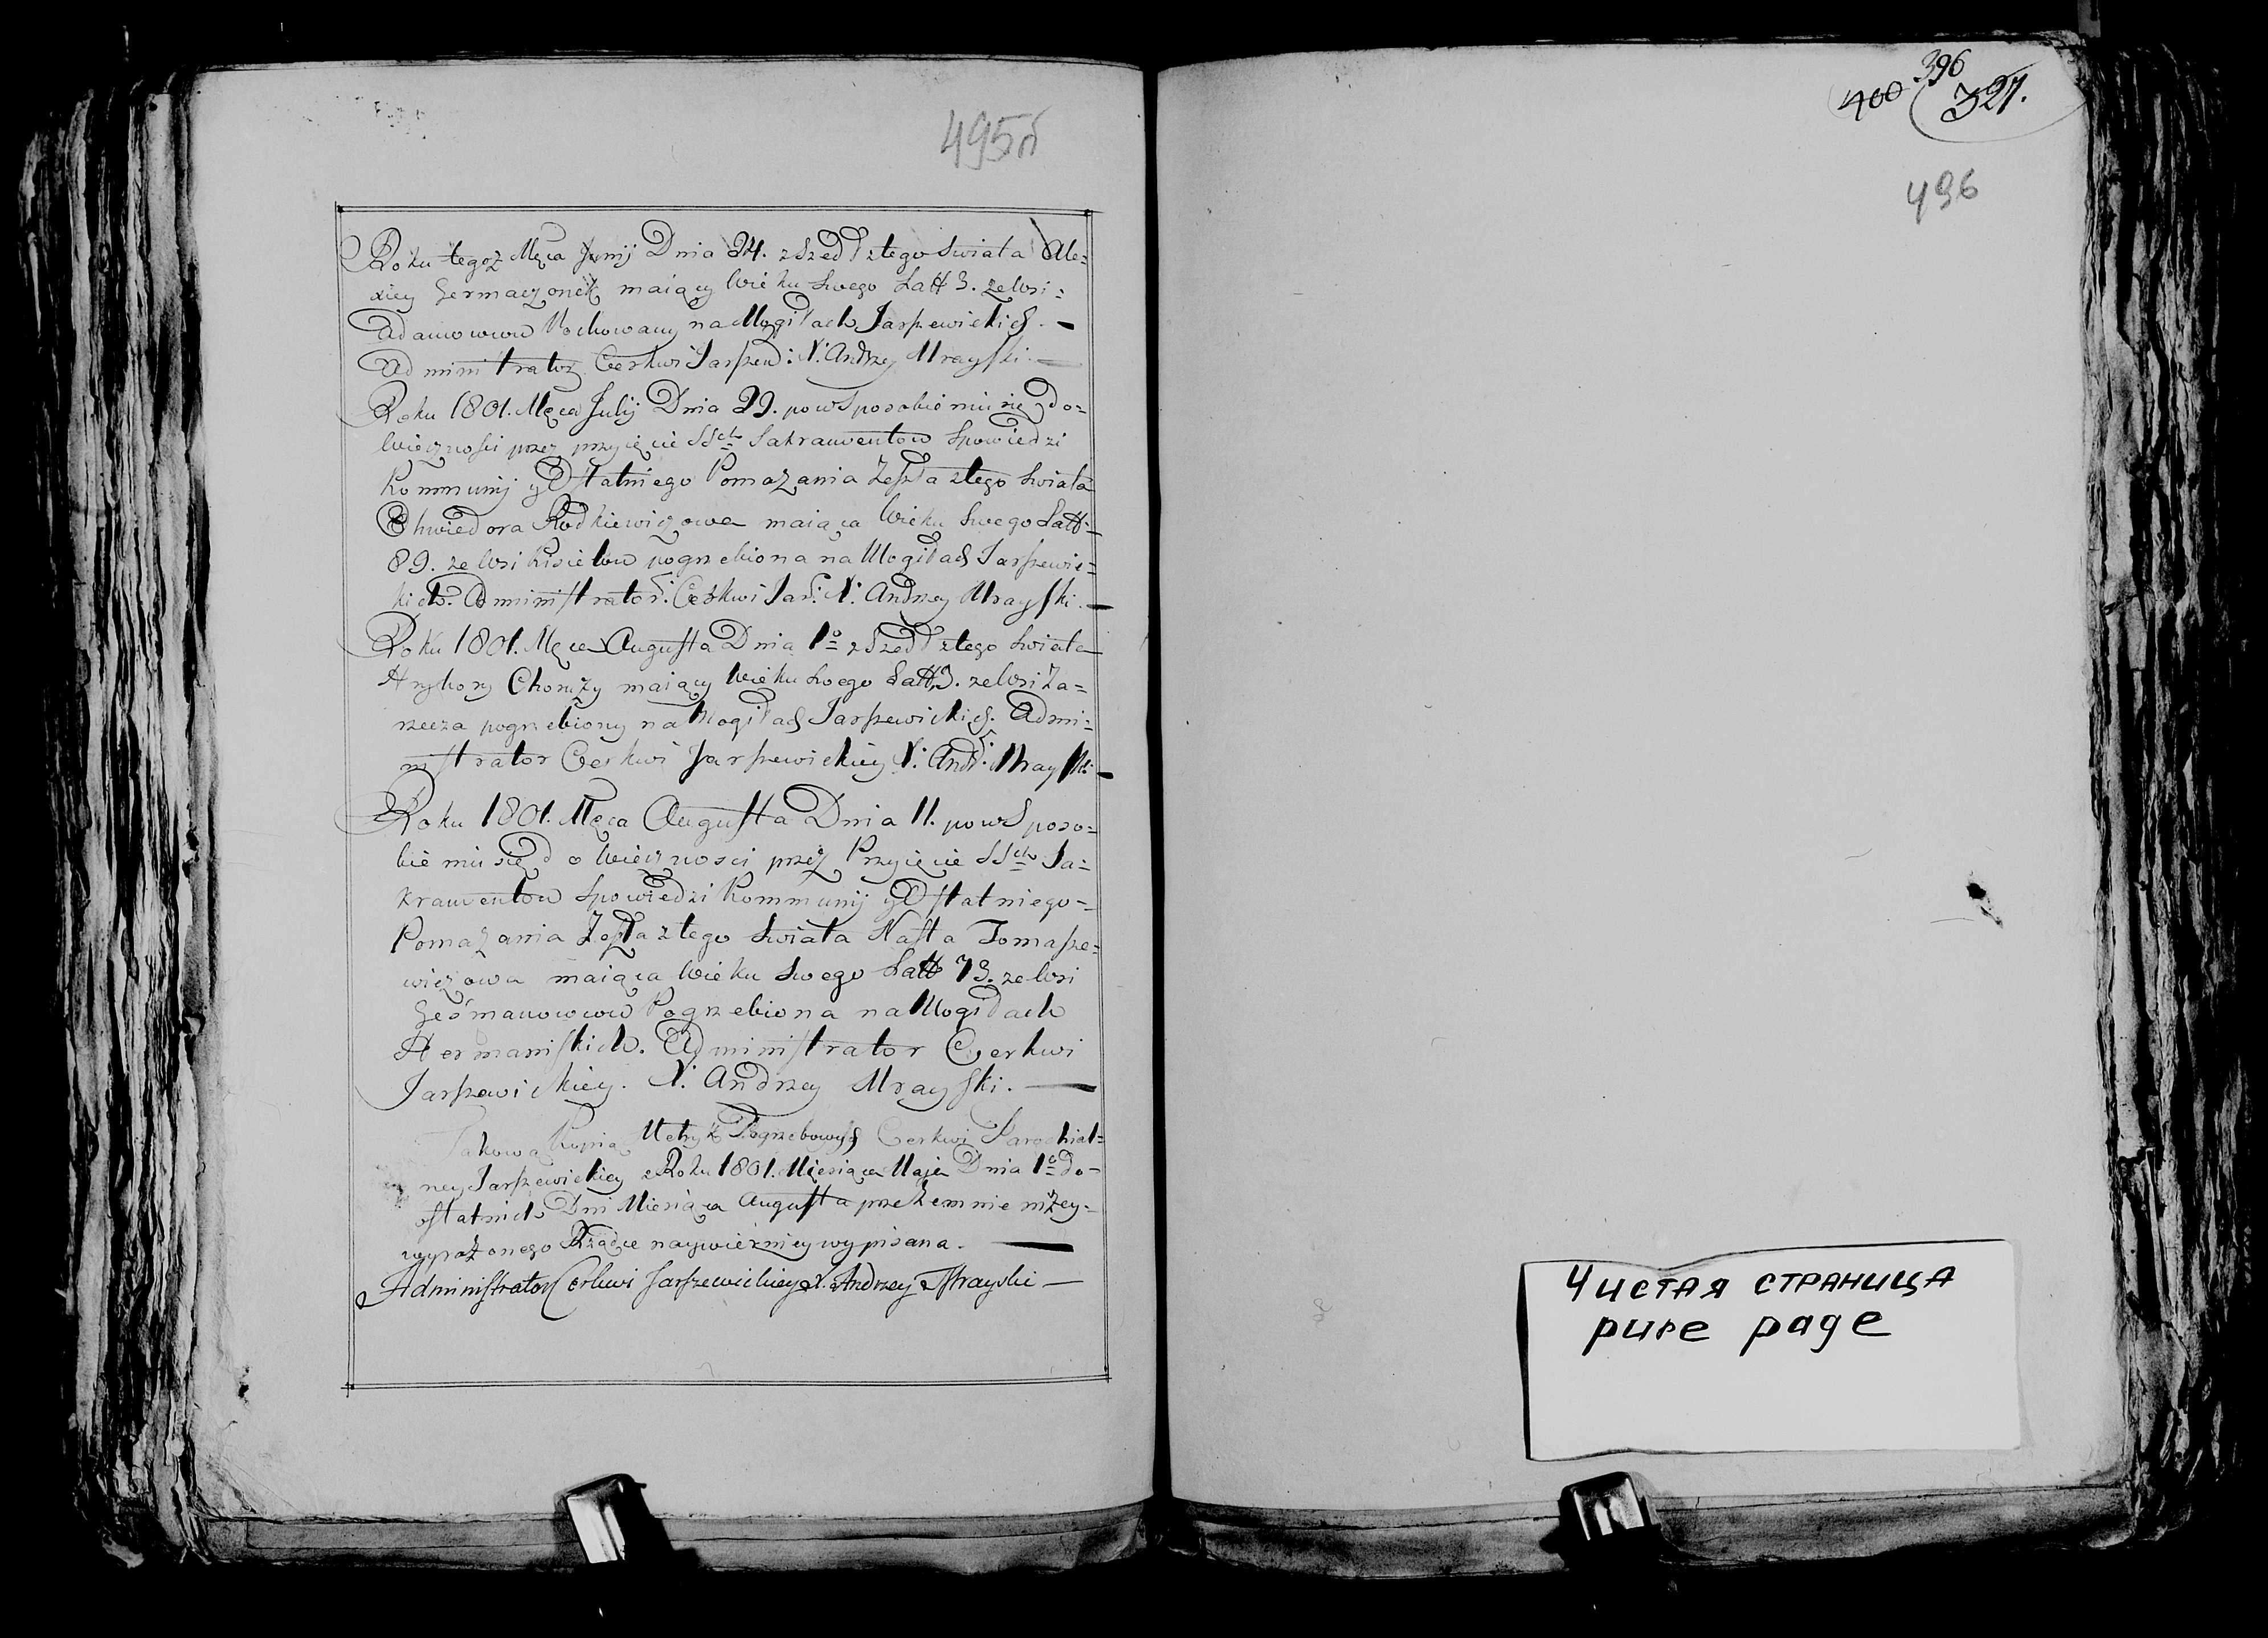 495б
Roku tegoż Męca Junij Dnia 24. zszedł ztego swiata Ale=
xiey Hermaczonek maiący Wieku swego Latt 3. ze Wsi=
Adamowow Pochowany na Mogiłach Jarszewickich. —
Administrator Cerkwi Jarszew: X: Andrzey Mrayski. —
Roku 1801. Męca Julij Dnia 29. po wsposobieniu się do=
Wiecznosci przez przyięcie SSch Sakramentow Spowiedzi
Kommunij y Ostatniego Pomazania Zeszła ztego swiata
Chwiedora Rodkiewiczowa maiąca Wieku swego Latt=
89. ze Wsi Kisielow pogrzebiona na Mogiłach Jarszewic=
kich. Administrator. Cerkwi Jar: X: Andrzey Mrayski. —
Roku 1801. Męca Augusta Dnia 1o zszedł ztego swiata
Hryhory Chorąży maiący Wieku swego Latt 3. ze Wsi Za=
rzecza pogrzebiony na Mogiłach Jarszewickich. Admi=
nistrator Cerkwi Jarszewickiey X: And: Mrayski —
Roku 1801. Męca Augusta Dnia 11. po wsposo=
bieniu się do Wiecznosci przez Przyięcie SSch Sa=
kramentow Spowiedzi Kommunij y Ostatniego=
Pomazania Zeszła ztego swiata Nasta Tomasze=
wiczowa maiąca Wieku swego Latt 73. ze Wsi
Hermanowow Pogrzebiona na Mogiłach
Hermaniskich. Administrator Cerkwi
Jarszewickiey. X: Andrzey Mrayski. —
Takowa Kopia Metryk Pogrzebowych Cerkwi Parochial=
ney Jarszewickiey z Roku 1801. Miesiąca Maja Dnia 1o do=
ostatnich Dni Miesiąca Augusta przezemnie niżey=
wyrażonego Rządce naywierniey wypisana. —
Administrator Cerkwi Jarszewickiey X. Andrzey Mrayski —
396
400 327.
496
Чистая страница
pure page